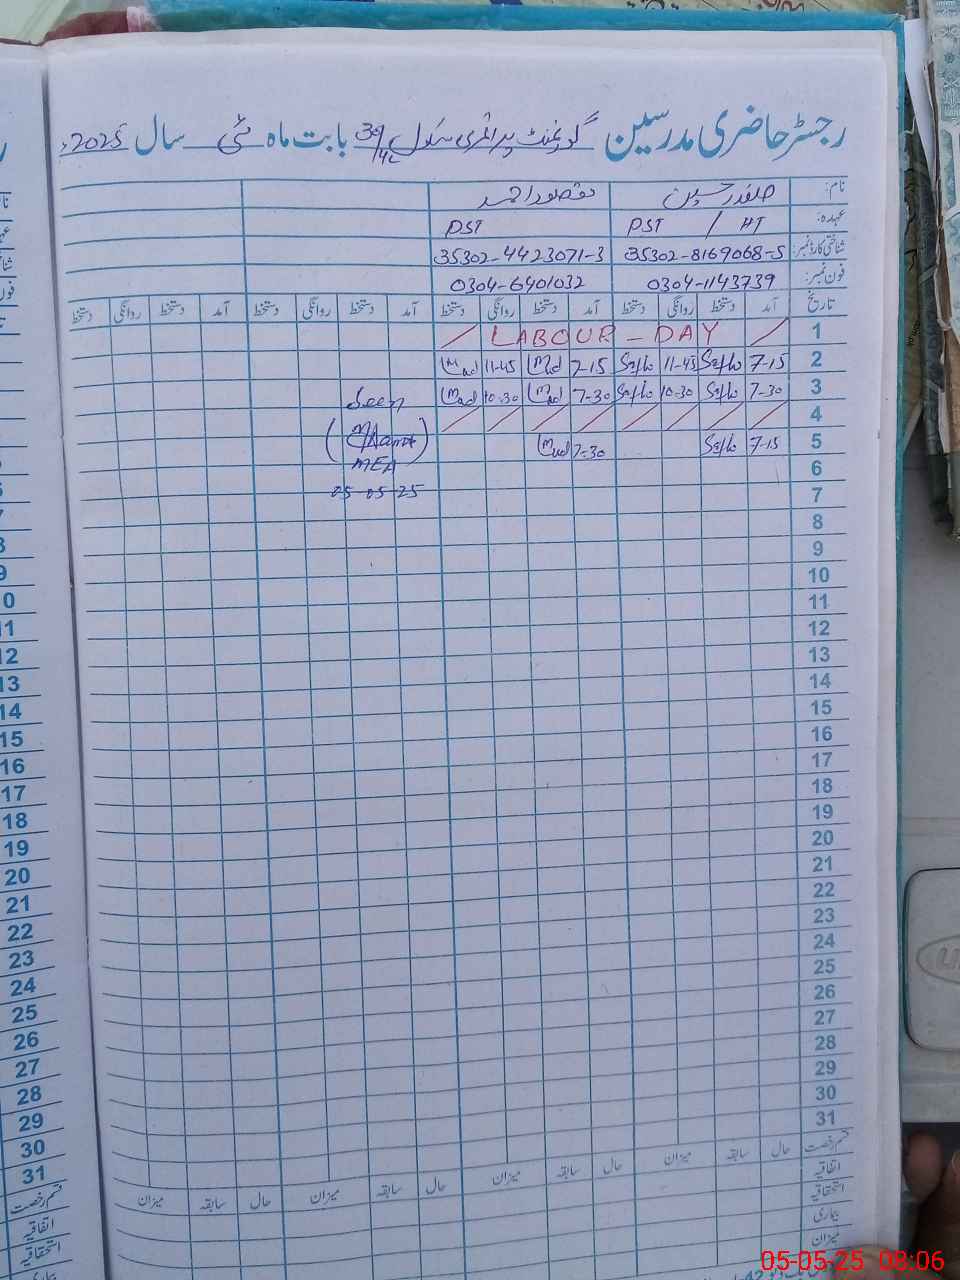 رجسٹر حاضری مدرسین گورنمنٹ پرائمری سکول 30/4L بابت ماہ مئی سال 2025ء
نام: صفدر حسین مقصود احمد
عہدہ: PST / HT PST
شناختی کارڈ نمبر: 35302-8169068-5 35302-4423071-3
فون نمبر: 0304-1143739 0304-6401032
تاریخ آمد دستخط روانگی دستخط آمد دستخط روانگی دستخط آمد دستخط روانگی دستخط آمد دستخط روانگی دستخط
1 / LABOUR - DAY /
2 7-15 11-45 7-15 11-45
3 7-30 10-30 7-30 10-30 Seen
4 / / / / / / / /
5 7-15 7-30
6 MEA
7 05-05-25
8
9
10
11
12
13
14
15
16
17
18
19
20
21
22
23
24
25
26
27
28
29
30
31
قسم رخصت حال سابقہ میزان حال سابقہ میزان حال سابقہ میزان حال سابقہ میزان
اتفاقیہ
استحقاقیہ
بیماری
میزان
0
11
12
13
14
15
16
17
18
19
20
21
22
23
24
25
26
27
28
29
30
31
قسم رخصت
اتفاقیہ
استحقاقیہ
05-05-25 08:06